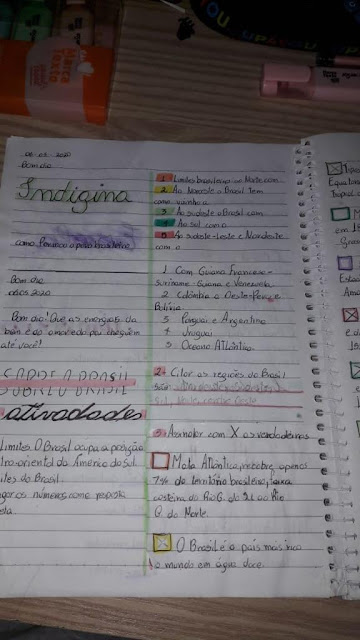 Marca
Texto
06-03-2020
Bom dia
Indigina
como Formou o povo brasileiro
Bom dia
09/03 2020
Bom dia! Que as energias da
bem e do amor
até você!
SOBRE O BRASIL
atividades
Limites O Brasil ocupa a posição
tro-oriental da América do Sul.
ites do Brasil.
os números como resposta
1 Limites brasileiros ao Norte com
2 Ao Noroeste o Brasil Tem
como vizinho a
3 Ao sudoste o Brasil com
4 Ao Sul com o
5 Ao sudoste-Leste e Nordeste
com o
1 Com Guiana Francesa-
suriname-Guiana e Venezuela
2 Colômbia a Oeste-Peru e
Bolívia
3 Paraguai e Argentina
4 Uruguai
5 Oceano Atlântico
2- Citar as regiões do Brasil
Sul, Centro Oeste
3- Assinalar com X as verdadeiras
Mata Atlântica, recobre apenas
7% do território brasileiro, faixa
costeira do Rio G. do Sul ao Rio
G do Norte.
O Brasil é o país mais rico
do mundo em água doce.